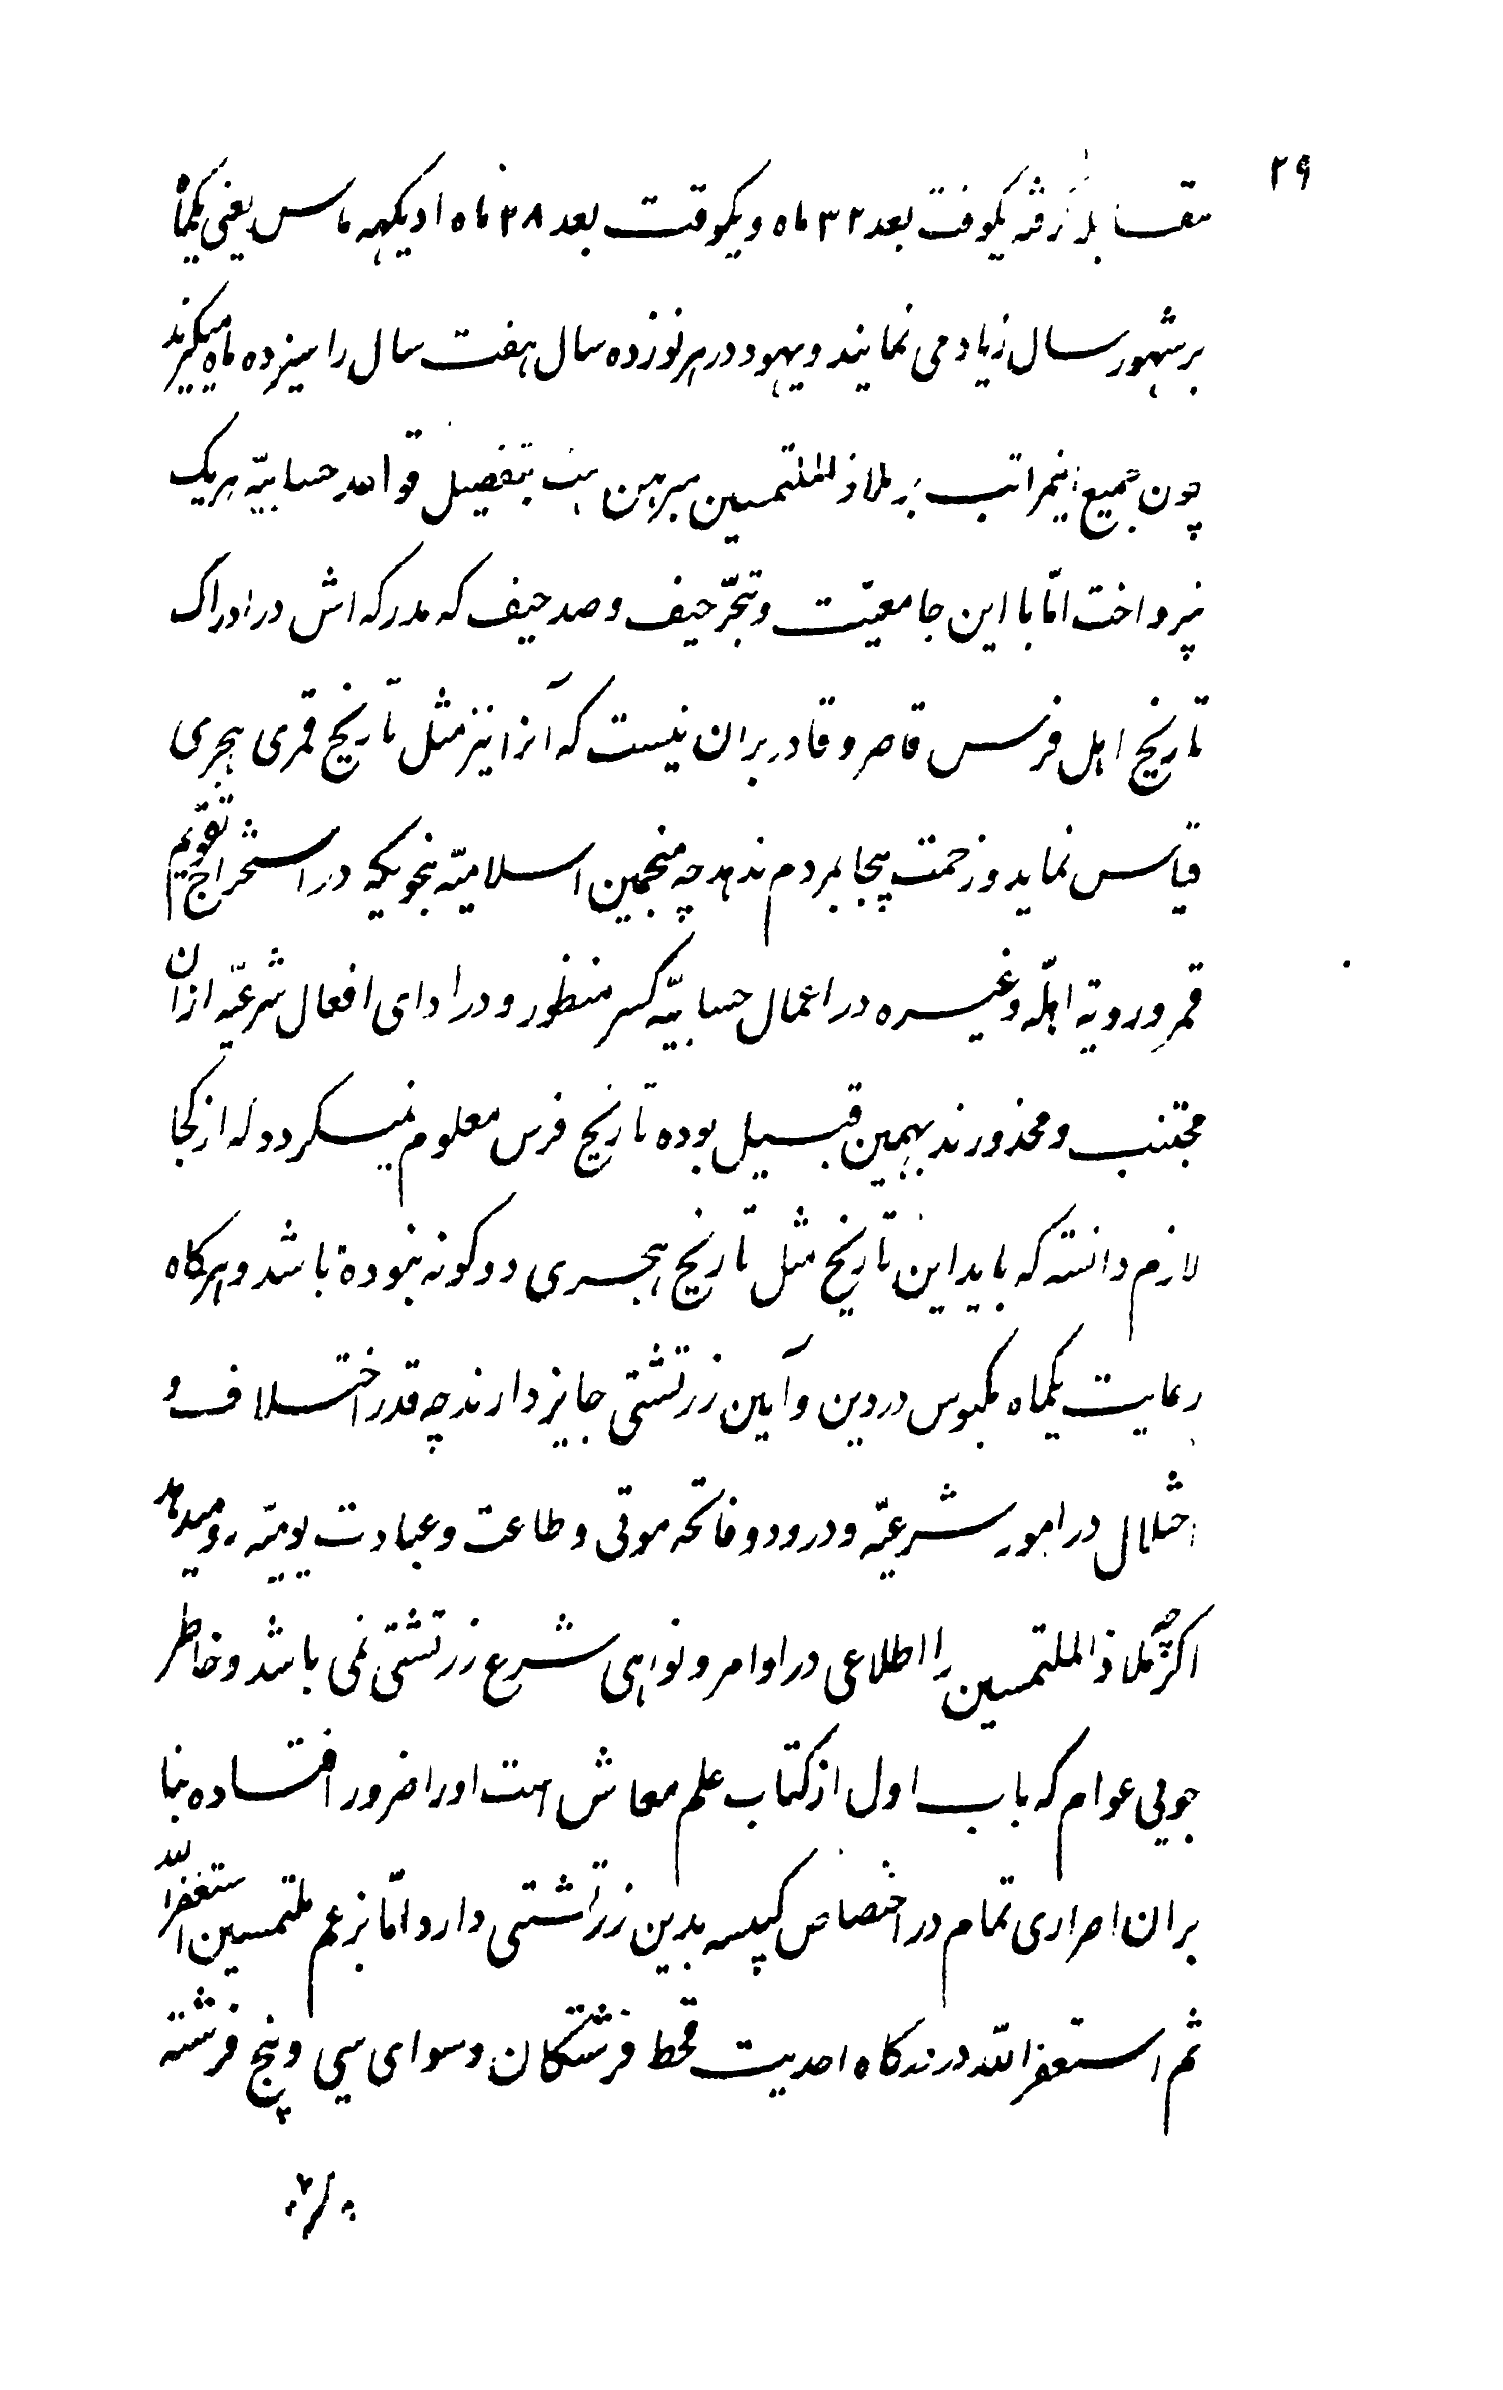 ۲۹
مقابل رفه یکوقت بعد ۳۲ ماه و یکوقت بعد ۲۸ ماه ادیکهه ماس یعنی یکماه
بر شهور سال زیاد می نمایند و یهود در هر نوزده سال هفت سال را سیزده ماه میگیرند
چون جمیع اینمراتب بر ملاذ الملتمسین مبرهن است بتفصیل قواعد حسابیّه هریک
نپرداخت امّا با این جامعیّت و تبحّر حیف و صد حیف که مدرکه اش در ادراک
تاریخ اهل فرس قاصر و قادر بران نیست که آنرا نیز مثل تاریخ قمری هجری
قیاس نماید و زحمت بیجا بمردم ندهد چه منجمین اسلامیّه بنحویکه در استخراج تقویم
قمر و رویة اهلّه و غیره در اعمال حسابیّه کسر منظور و در ادای افعال شرعیّه ازان
مجتنب و محذورند بهمین قبیل بوده تاریخ فرس معلوم نمیکردد که از کجا
لازم دانسته که باید این تاریخ مثل تاریخ هجری دوکونه نبوده باشد و هرکاه
رعایت یکماه مکبوس در دین و آیین زرتشتی جایز دارند چه قدر اختلاف و
اختلال در امور شرعیّه و درود و فاتحه موتی و طاعت و عبادت یومیّه رو میدهد
اکرچه ملاذ الملتمسین را اطلاعی در اوامر و نواهی شرع زرتشتی نمی باشد و خاطر
جویی عوام که باب اول از کتاب علم معاش است اورا ضرور افتاده بنا
بران اصراری تمام در اختصاص کبیسه بدین زرتشتی دارد امّا بزعم ملتمسین استغفر الله
ثم استغفر الله در ندکاه احدیت قحط فرشتکان و سوای سی و پنج فرشته